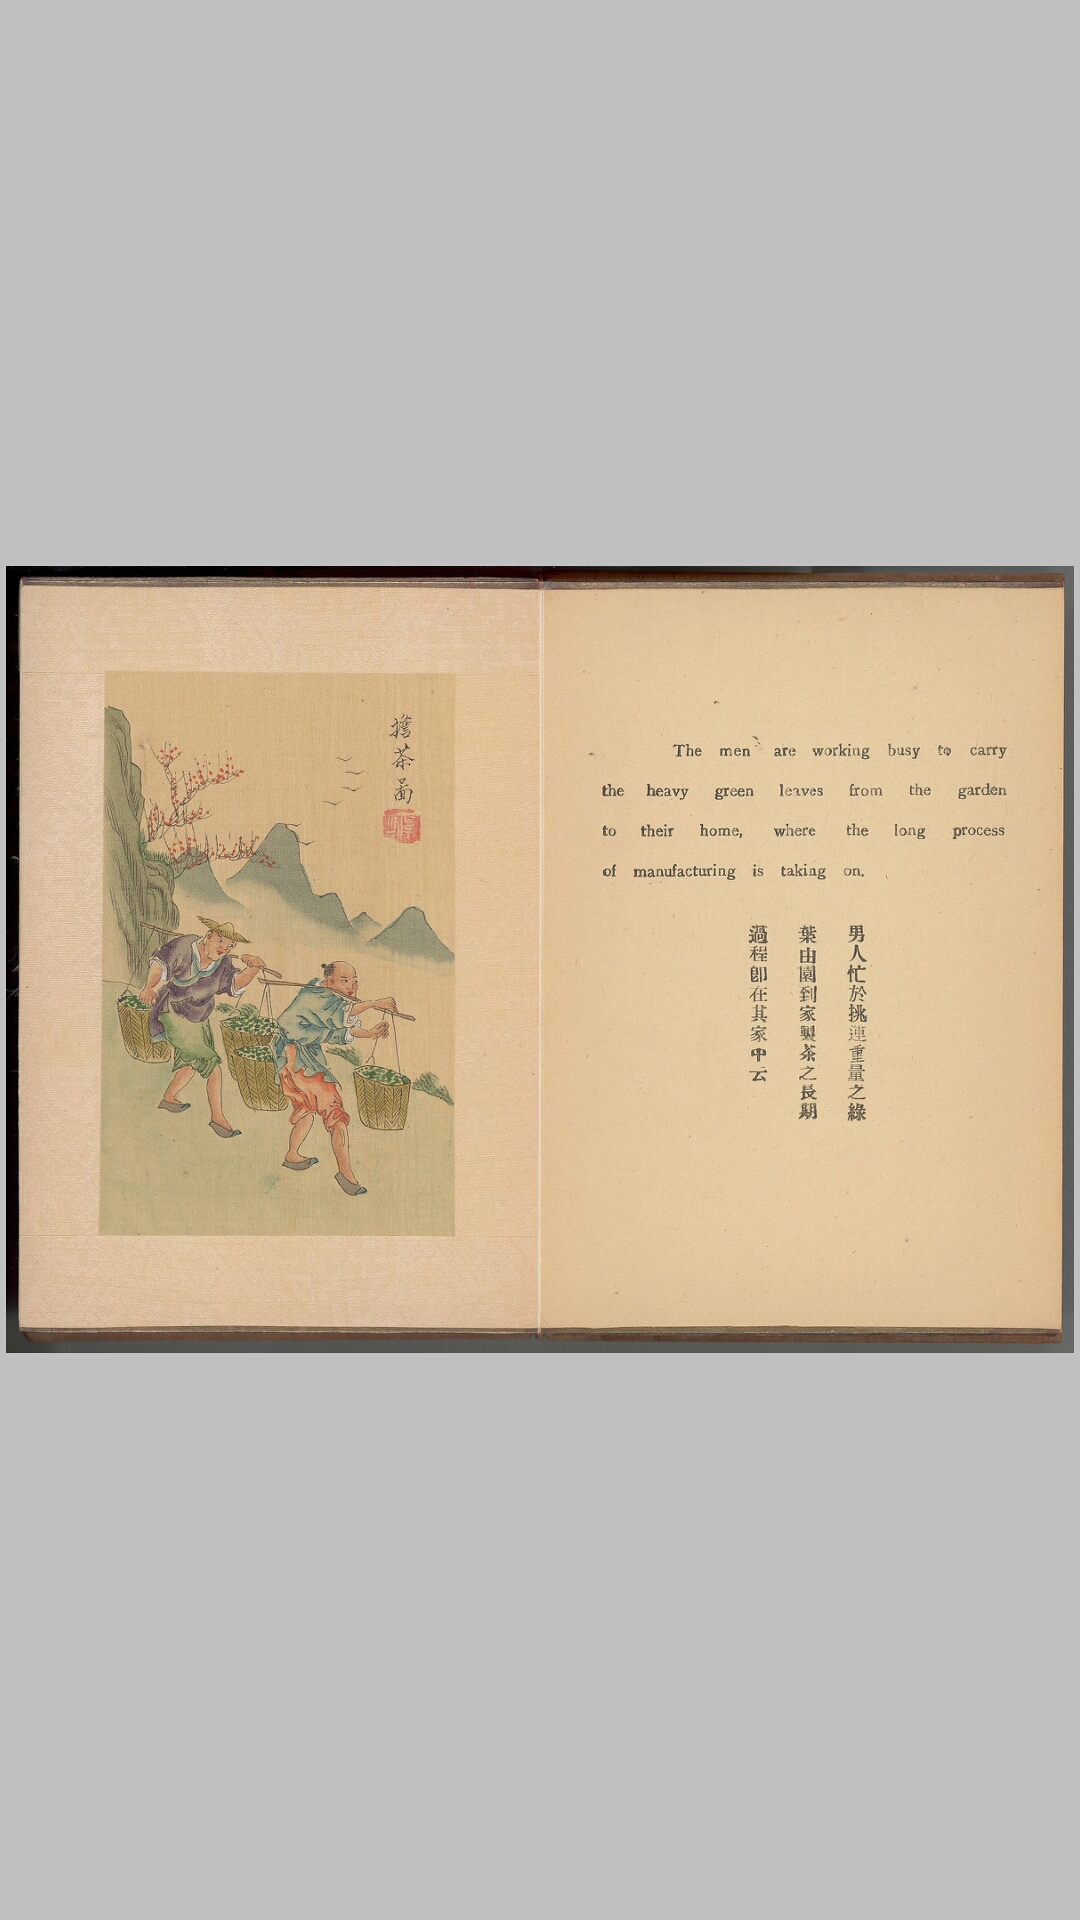 擔茶啚
The men are working busy to carry
the heavy green leaves from the garden
to their home, where the long process
of manufacturing is taking on.
男人忙於挑運重量之綠
葉由園到家製茶之長期
過程卽在其家中云